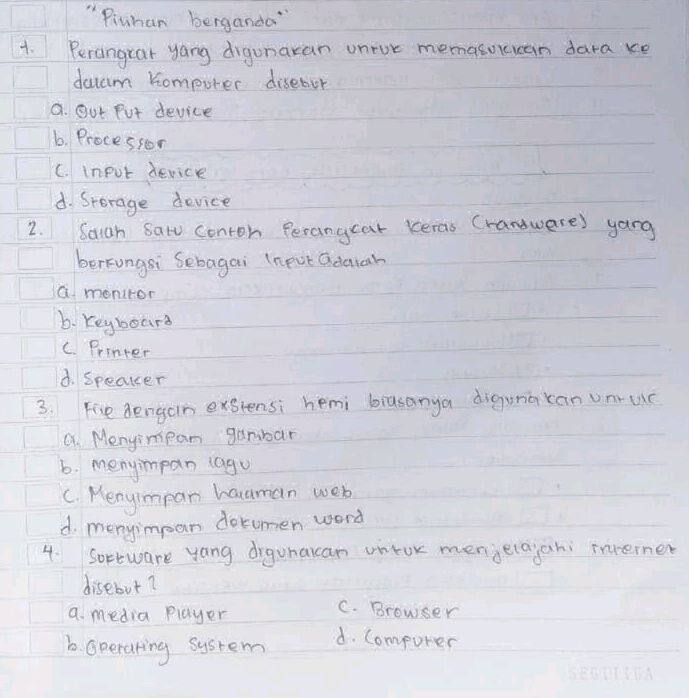 "Pilihan berganda"
1. Perangkat yang digunakan untuk memasukkan data ke
dalam Komputer disebut
a. Out Put device
b. Processor
c. Input device
d. Storage device
2. Salah Satu Contoh Perangkat keras (handware) yang
berfungsi Sebagai Input adalah
a. monitor
b. Keyboard
c. Printer
d. Speaker
3. File dengan exstensi heml biasanya digunakan untuk
a. Menyimpan gambar
b. menyimpan lagu
c. Menyimpan halaman web
d. menyimpan dokumen word
4. Software yang digunakan untuk menjelajahi internet
disebut?
a. media Player c. Browser
b. Operating System d. Computer
SEGITIGA